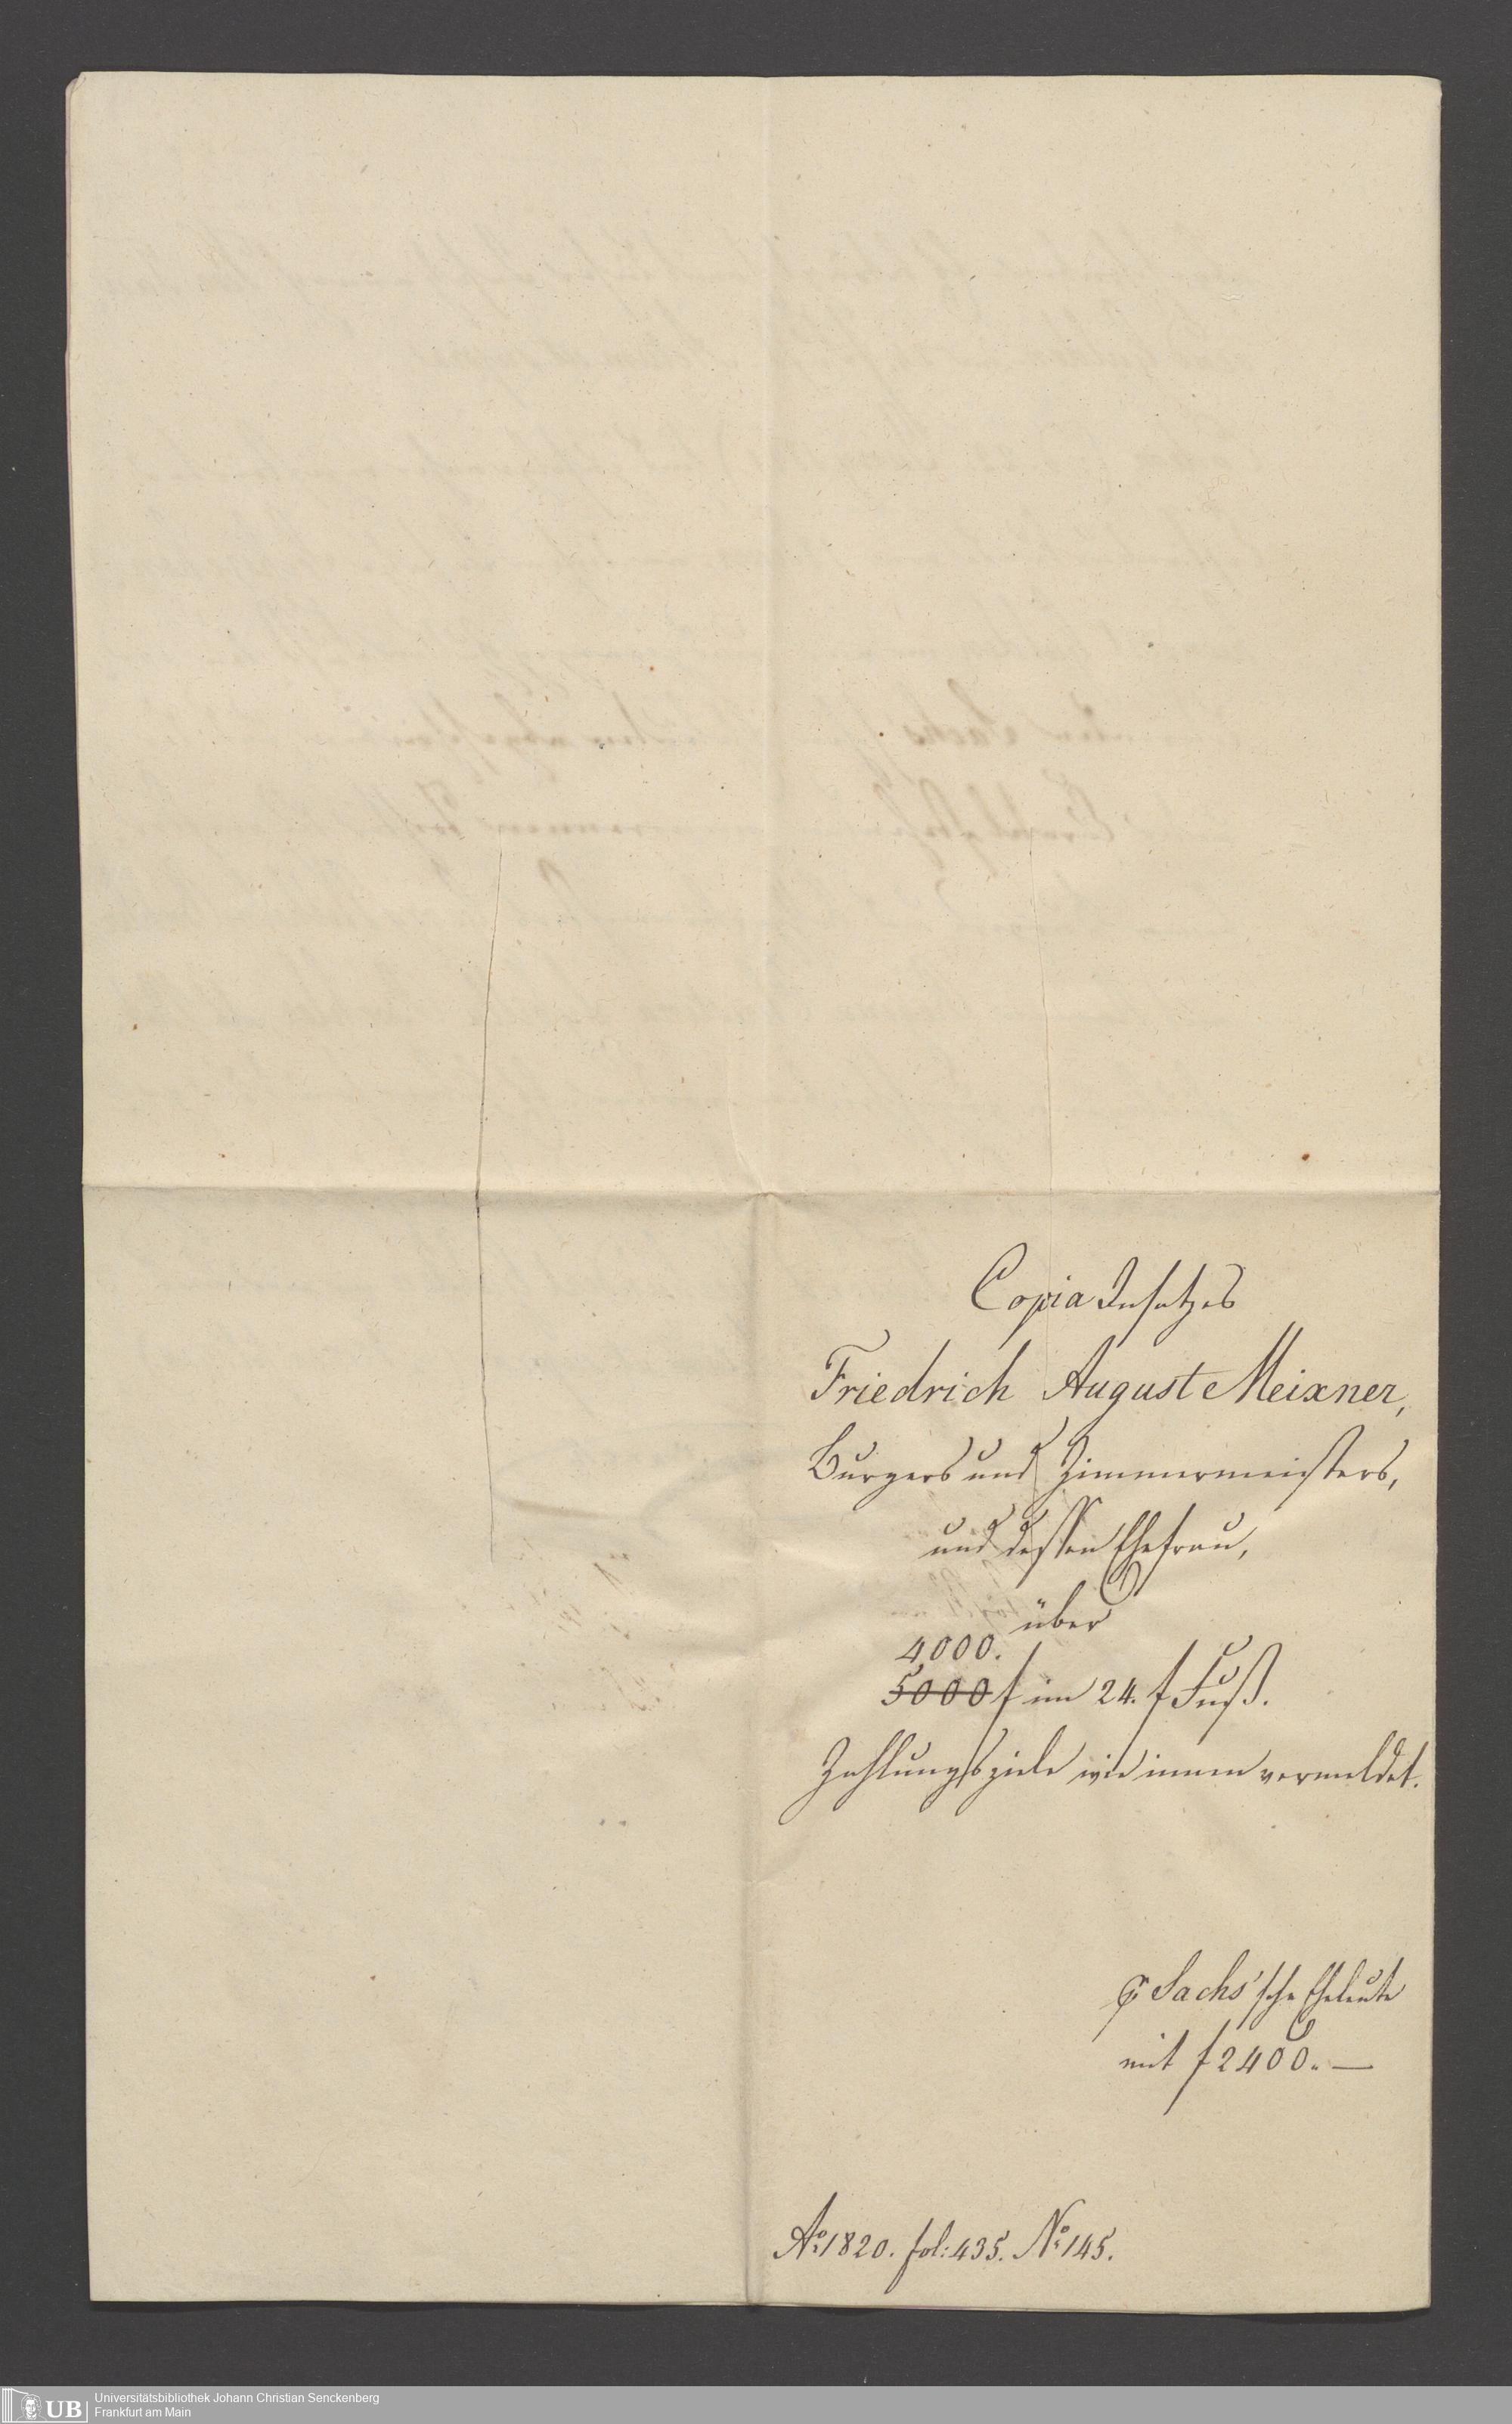 Copia Insatzes
Friedrich August Meixner,
Burgers und Zimmermeisters,
und dessen Ehefrau,
über
4000.
5000 f im 24. f Fuß.
Zahlungsziele wie innen vermeldet.
Sachs'sche Eheleute
mit f 2400.. —
Ao: 1820. fol: 435. No: 145.
UB
Universitätsbibliothek Johann Christian Senckenberg
Frankfurt am Main